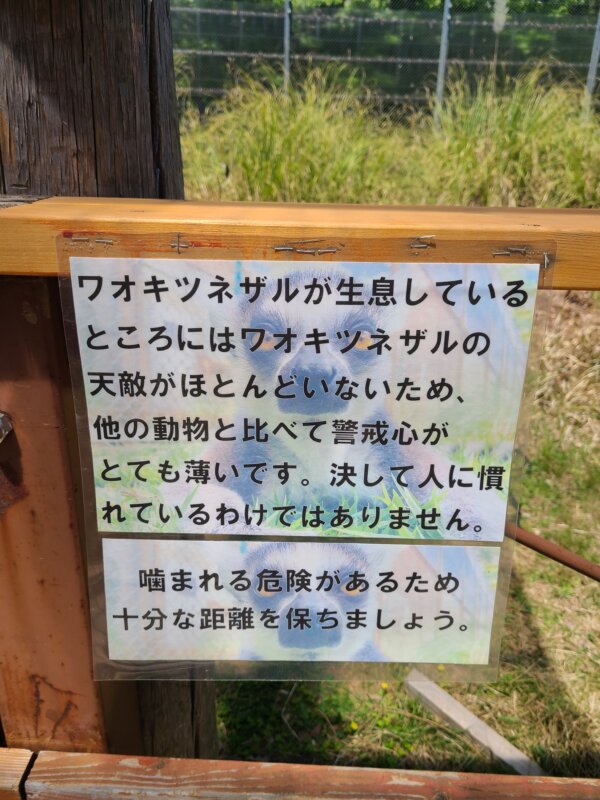 ワオキツネザルが生息している
ところにはワオキツネザルの
天敵がほとんどいないため、
他の動物と比べて警戒心が
とても薄いです。決して人に慣
れているわけではありません。
噛まれる危険があるため
十分な距離を保ちましょう。